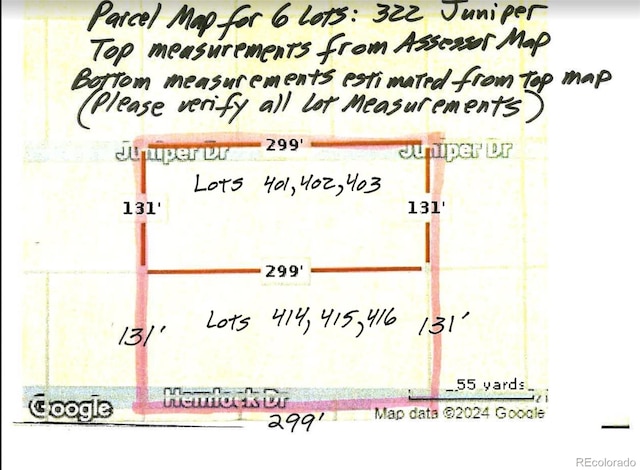 Parcel Map for 6 Lots: 322 Juniper
Top measurements from Assessor Map
Bottom measurements estimated from top map
(Please verify all Lot Measurements)
Juniper Dr 299' Juniper Dr
Lots 401, 402, 403
131' 131'
299'
Lots 414, 415, 416
131' 131'
55 yards
Hemlock Dr
Google
Map data ©2024 Google
299'
REcolorado